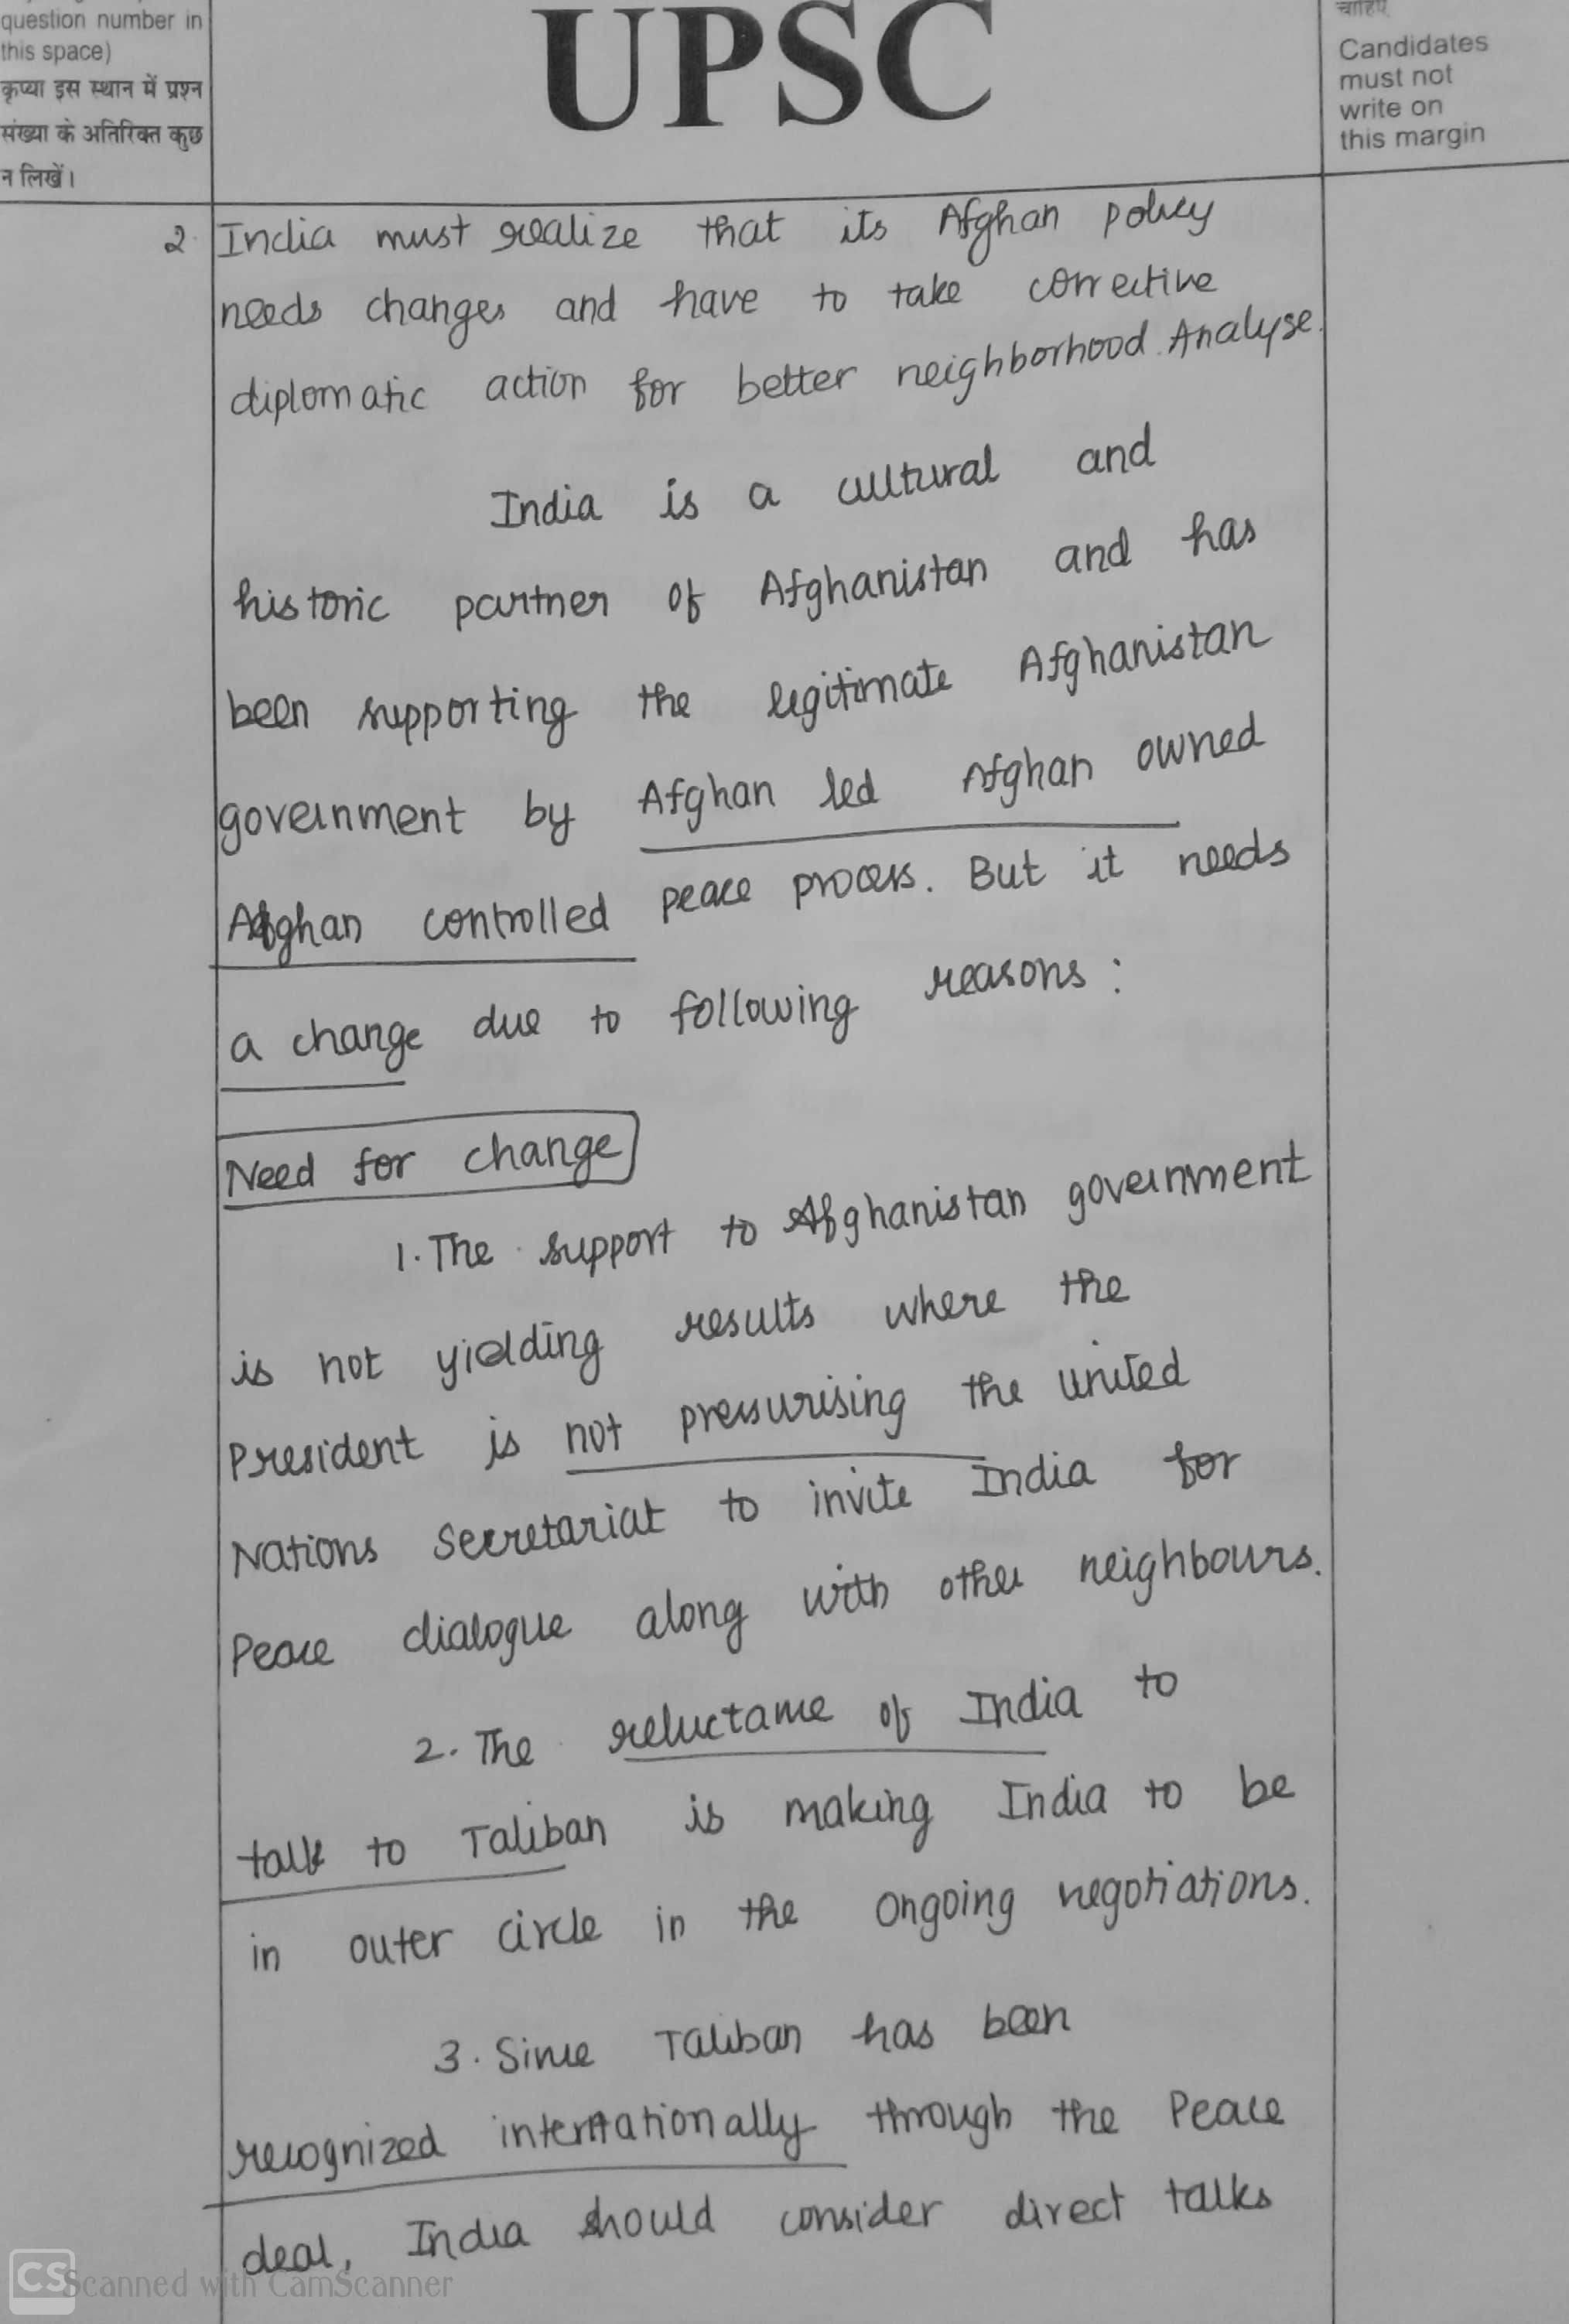 question number in
this space)
कृप्या इस स्थान में प्रश्न
संख्या के अतिरिक्त कुछ
न लिखें।
UPSC
चाहिए
Candidates
must not
write on
this margin
2. India must realize that its Afghan policy
needs changes and have to take corrective
diplomatic action for better neighborhood. Analyse.
India is a cultural and
historic partner of Afghanistan and has
been supporting the legitimate Afghanistan
government by Afghan led Afghan owned
Afghan controlled peace process. But it needs
a change due to following reasons:
Need for change
1. The support to Afghanistan government
is not yielding results where the
President is not pressurising the united
Nations Secretariat to invite India for
Peace dialogue along with other neighbours.
2. The reluctance of India to
talk to Taliban is making India to be
in outer circle in the ongoing negotiations.
3. Since Taliban has been
recognized internationally through the Peace
deal, India should consider direct talks
CS Scanned with CamScanner